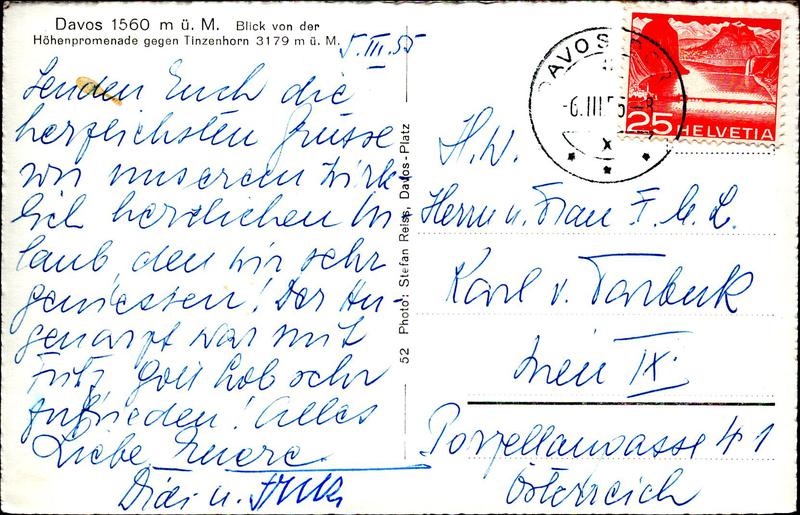 Davos 1560 m ü. M. Blick von der
Höhenpromenade gegen Tinzenhorn 3179 m ü. M.
5.III.55
Senden Euch die
herzlichsten Grüsse
von unserem wirk-
lich herrlichen Ur
laub, den wir sehr
geniessen! Der Au-
genarzt war mit
Fritz Gott Lob sehr
zufrieden! Alles
Liebe Euere
Didi u. Fritz
52 Photo: Stefan Reiss, Davos-Platz
DAVOS
-6.III.55-8
X
25 HELVETIA
H.W.
Herrn u. Frau F.M.L.
Karl v.
Wien IX.
Porzellangasse 41
Österreich